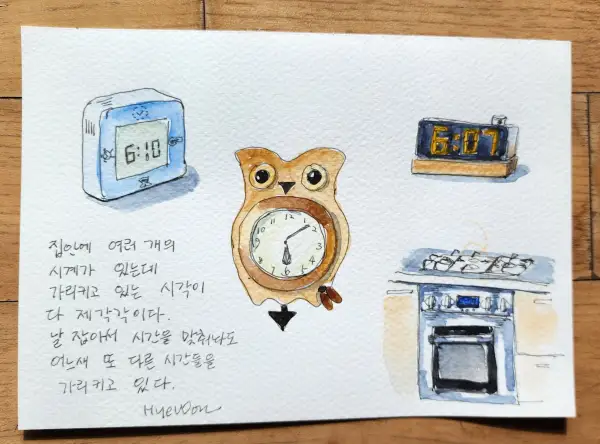 6:10
6:07
12
집안에 여러 개의
시계가 있는데
가리키고 있는 시각이
다 제각각이다.
날 잡아서 시간을 맞춰놔도
어느새 또 다른 시간들을
가리키고 있다.
HyeYoon